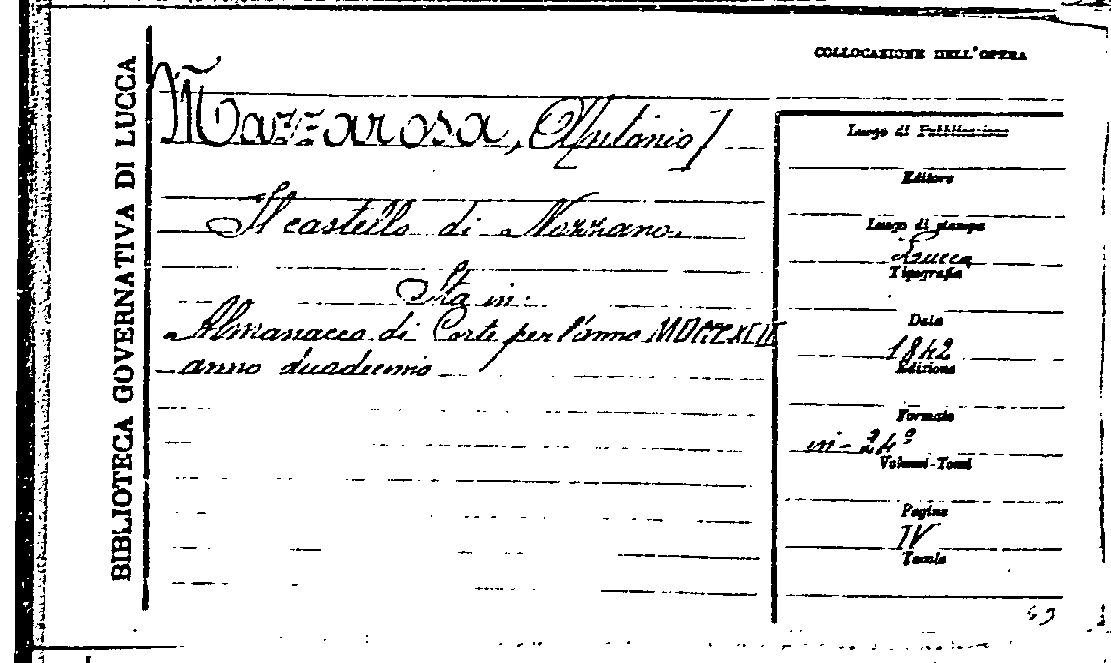 BIBLIOTECA GOVERNATIVA DI LUCCA
COLLOCAZIONE DELL'OPERA
Mazzarosa, Antonio]
Il castello di Nozzano.
Sta in:
Almanacco di Corte per l'anno
anno duodecimo
Luogo di Pubblicazione
Editore
Luogo di stampa
Lucca
Tipografia
Data
1842
Edizione
Formato
in-24º
Volumi-Tomi
Pagine
IV
Tavole